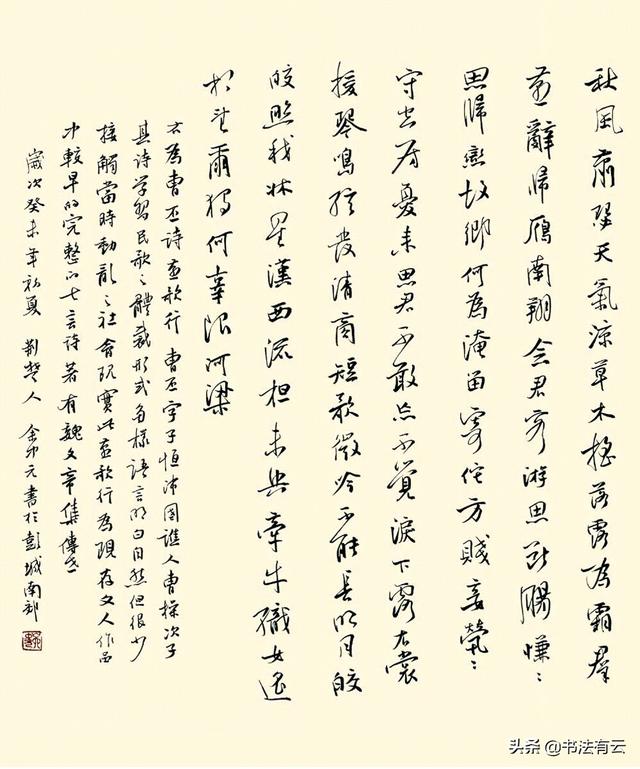 秋風蕭瑟天氣涼草木搖落露為霜羣
燕辭歸雁南翔念君客游思斷腸慊〻
思歸戀故鄉何為淹留寄佗方賤妾煢〻
守空房憂來思君不敢忘不覺淚下霑衣裳
援琴鳴弦發清商短歌微吟不能長明月皎
皎照我牀星漢西流夜未央牽牛織女遥
相望爾獨何辜限河梁
右為曹丕詩燕歌行 曹丕字子恒沛國譙人曹操次子
其詩學習民歌之體裁形式多樣語言明白自然但很少
接觸當時動亂之社會現實此燕歌行為現存文人作品
中較早的完整的七言詩著有魏文帝集傳世
歲次癸未年初夏 荆楚人 金印元書於彭城南郊
头条 @书法有云